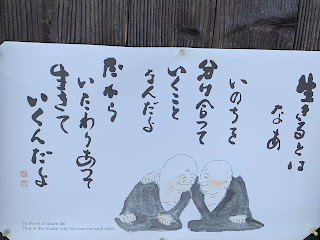 生きるとは
なあ
いのちを
分け合って
いくこと
なんだよ
だから
いたわりあって
生きて
いくんだよ
To live is to share life.
That is the reason why we care for each other.